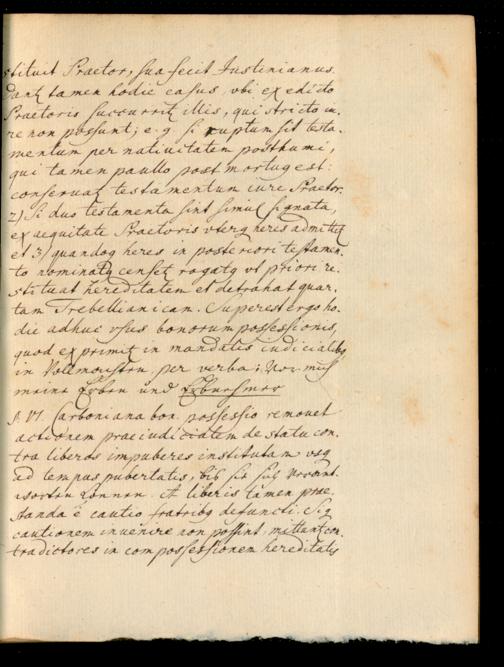 stituit Praetor, sua fecit Justinianus.
Dantꝗ tamen hodie casus, vbi ex edicto
Praetoris succurritꝗ illis, qui stricto iu-
re non possunt; e. g. si ruptum sit testa-
mentum per nativitatem posthumi,
qui tamen paullo post mortuꝗ est:
conservatꝗ testamentum iure Praetor.
2) Si duo testamenta sint simul signata,
ex aequitate Praetoris vterꝗ heres admittetꝗ
et 3) quandoꝗ heres in posteriori testamen-
to nominatꝗ censetꝗ rogatꝗ vt priori re-
stituat hereditatem et detrahat quar-
tam Trebellianicam. Superest ergo ho-
die adhuc vsus bonorum possessionis,
quod exprimitꝗ in mandatis iudicialibꝗ
in Vollmachten per verba:
meine Erben und
§. VI. Carboniana bon. possessio removet
actionem praeiudicialem de statu con-
tra liberos impuberes institutam vsꝗ
ad tempus pubertatis, biß sie sich
können. A liberis tamen prae-
standa ē cautio fratribꝗ defuncti. Si ꝗ
cautionem invenire non possint, mittantꝗ con-
tradictores in compossessionem hereditatis